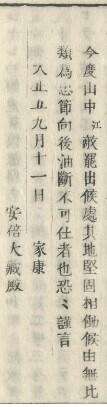 今度山中江敵罷出候處其地堅固相働候由無比
類為忠節向後油斷不可仕者也恐〻謹言
九月十一日　家康
安倍大藏殿